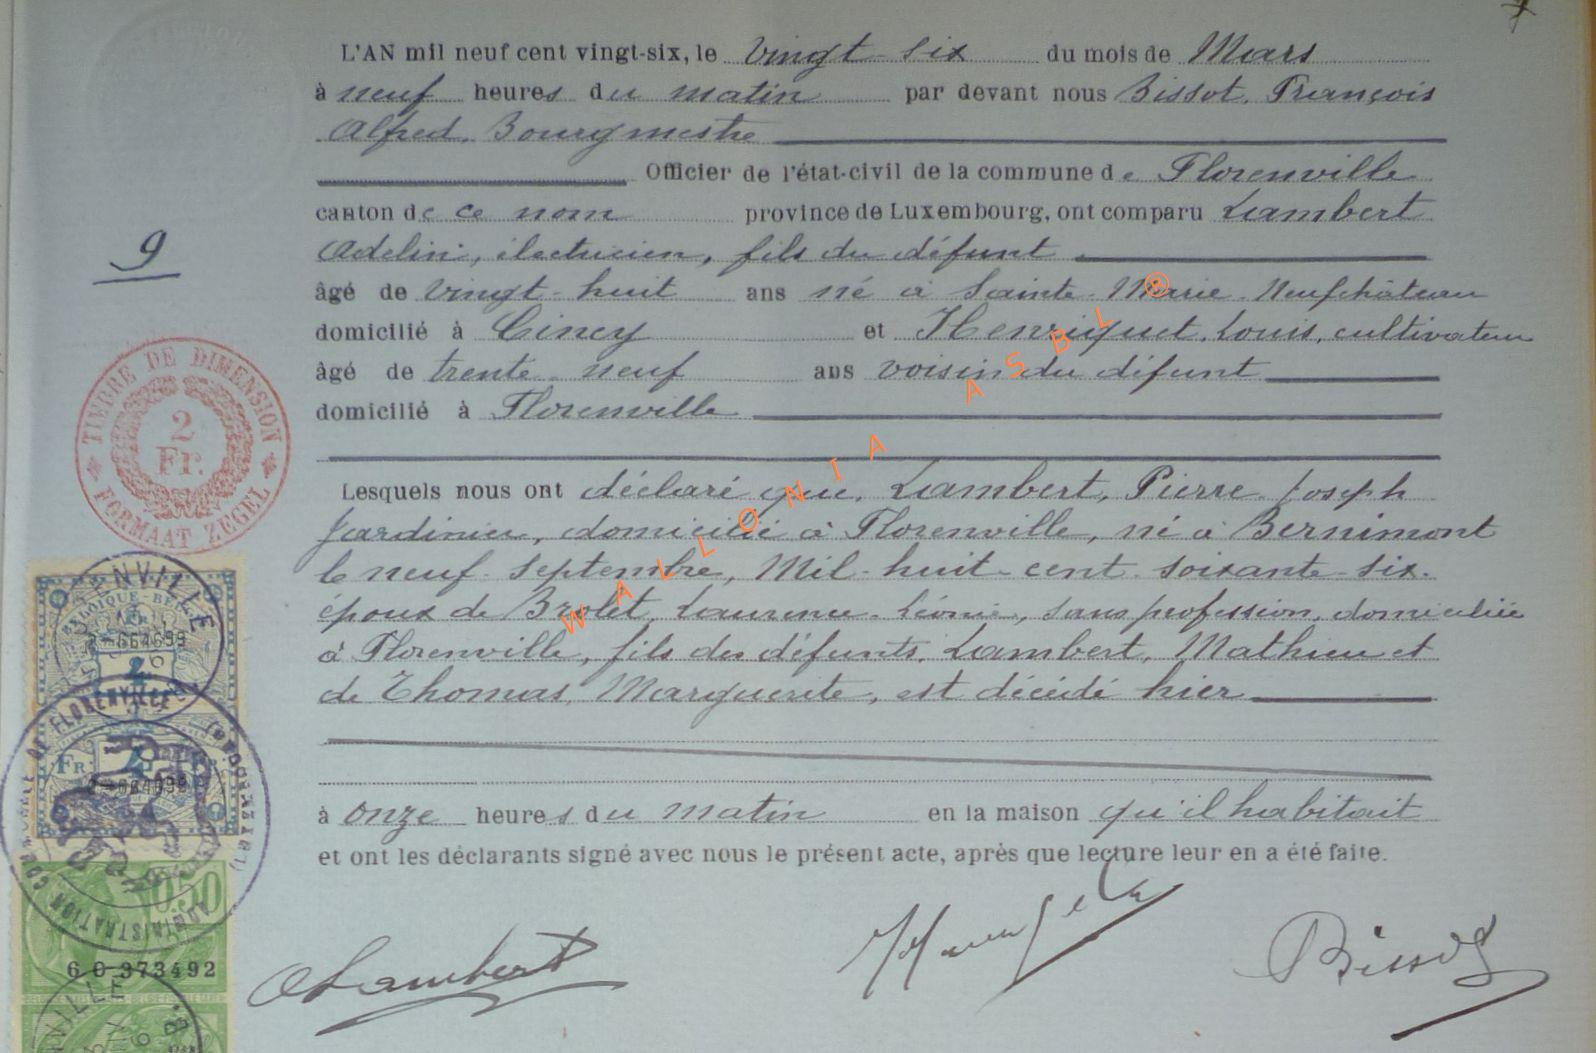 L'AN mil neuf cent vingt-six, le vingt-six du mois de Mars
à neuf heures du matin par devant nous Bissot, François
Alfred, Bourgmestre
Officier de l'état-civil de la commune de Florenville
canton de ce nom province de Luxembourg, ont comparu Lambert
Adelin, électricien, fils du défunt
9
âgé de vingt-huit ans né à Sainte-Marie-Neufchâteau
domicilié à Ciney et Henriquet, Louis, cultivateur
âgé de trente-neuf ans voisin du défunt
domicilié à Florenville
TIMBRE DE DIMENSION
2
Fr.
FORMAAT ZEGEL
Lesquels nous ont déclaré que, Lambert, Pierre Joseph
Jardinier, domicilié à Florenville, né à Bernimont
le neuf septembre, Mil-huit-cent-soixante-six.
époux de Brolet, Laurence Léonie, sans profession, domiciliée
à Florenville, fils des défunts, Lambert, Mathieu et
de Thomas, Marguerite, est décédé hier
à onze heures du matin en la maison qu'il habitait
et ont les déclarants signé avec nous le présent acte, après que lecture leur en a été faite.
ALambert Bissot
0.50
60 373492
WALLONIA ASBL ®